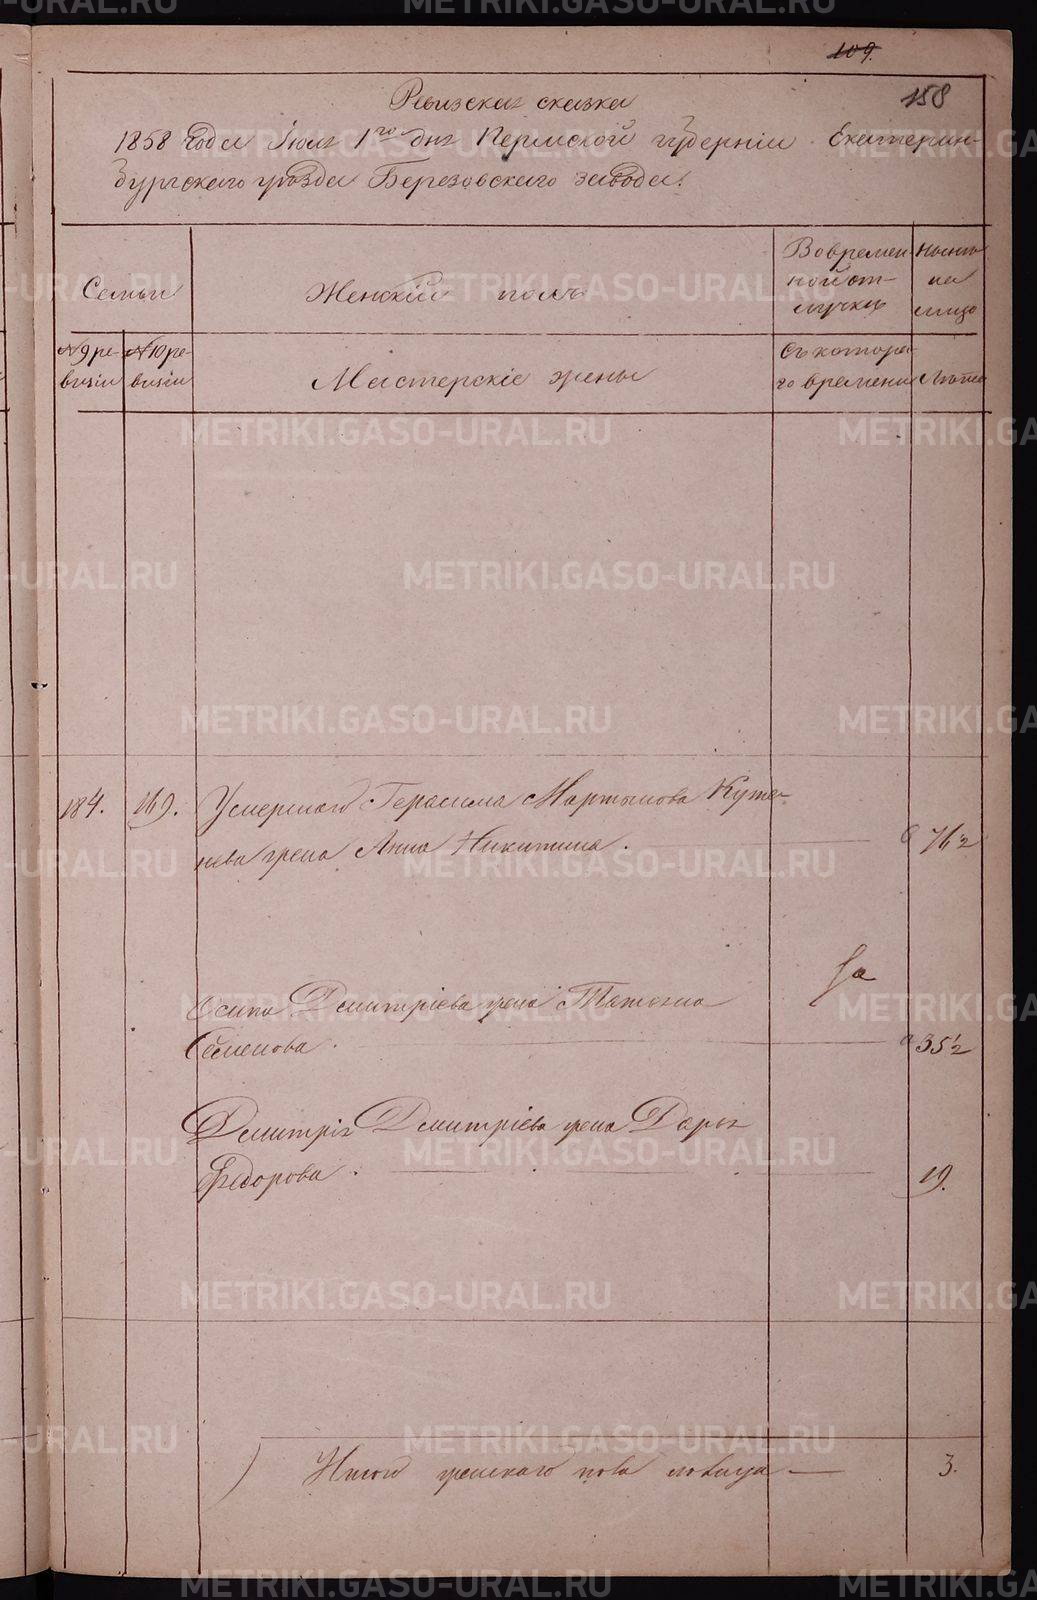 109.
158
Ревизская сказка
1858 года Іюля 1го дня Пермской губерніи Екатерин-
бургскаго уѣзда Березовскаго завода.
Семьи
Женскій полъ
Во времен-
ной от-
лучкѣ
Нынѣ
на
лицо
№ 9 ре-
визіи
№ 10 ре-
визіи
Мастерскіе жены
Съ котора-
го времени
Лѣта
184.
169.
Умершаго Герасима Мартынова Куте-
нева жена Анна Никитина.
76½
Осипа Дмитріева жена Татьяна
Семенова.
35½
Дмитрія Дмитріева жена Дарья
Федорова.
19.
Итого женскаго пола на лицо
3.
METRIKI.GASO-URAL.RU